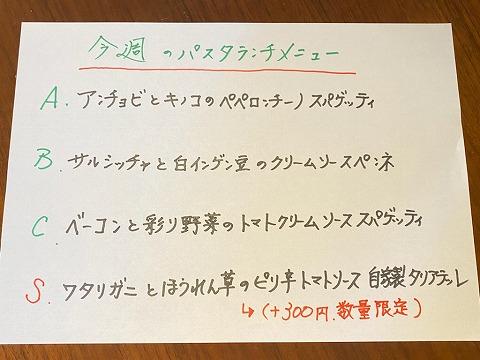 今週のパスタランチメニュー
A. アンチョビとキノコのペペロンチーノ スパゲッティ
B. サルシッチャと白インゲン豆のクリームソースペンネ
C. ベーコンと彩り野菜のトマトクリームソース スパゲッティ
S. ワタリガニとほうれん草のピリ辛トマトソース 自家製タリアテッレ
↳(+300円.数量限定)